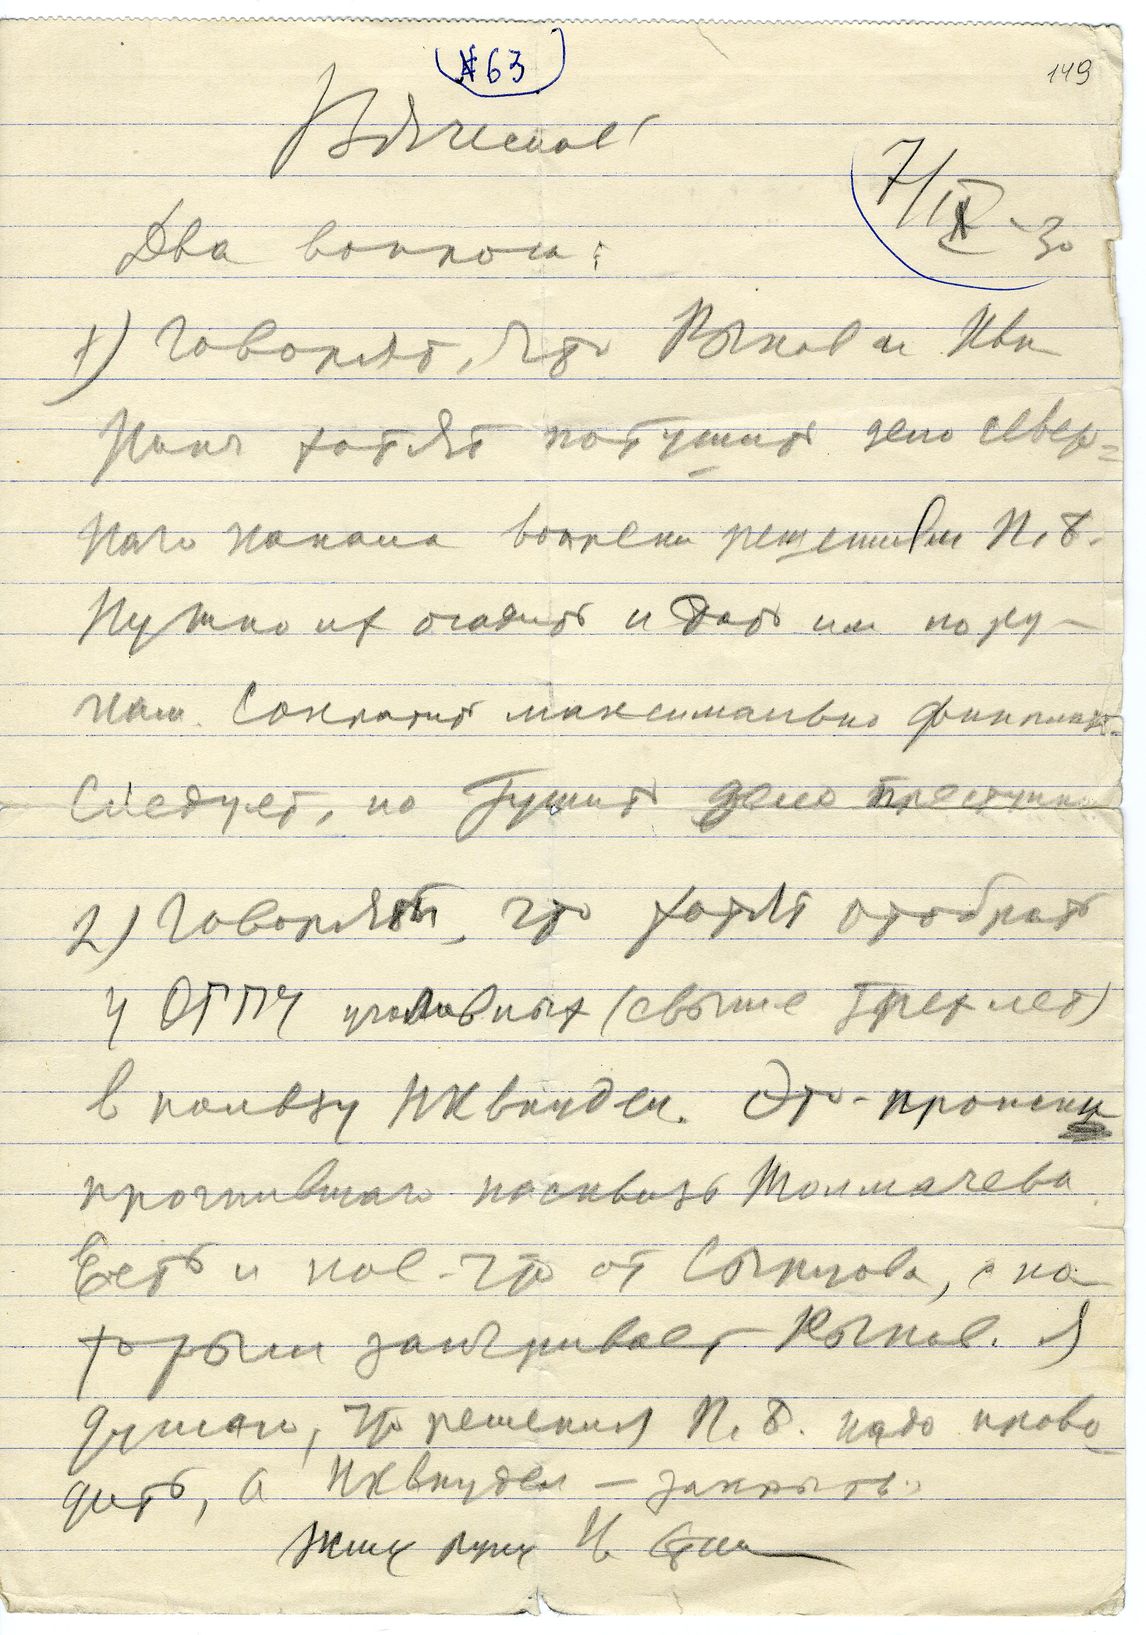 № 63
149
Вячеслав!
7/IX-30
Два вопроса:
1) Говорят, что Рыков и Кви
ринг хотят потушить дело север-
ного канала вопреки решениям П.Б.
Нужно их осадить и дать им по ру-
кам. Сократить максимально финплан
следует, но тушить дело преступно.
2) Говорят, что хотят отобрать
у ОГПУ уголовных (свыше трех лет)
в пользу НКвнудел. Это - происки
прогнившего насквозь Толмачева.
Есть и кое-что от Сырцова, с ко
торым заигрывает Рыков. Я
думаю, что решения П.Б. надо прово-
дить, а НКвнудел – закрыть.
Жму руку И Сталин